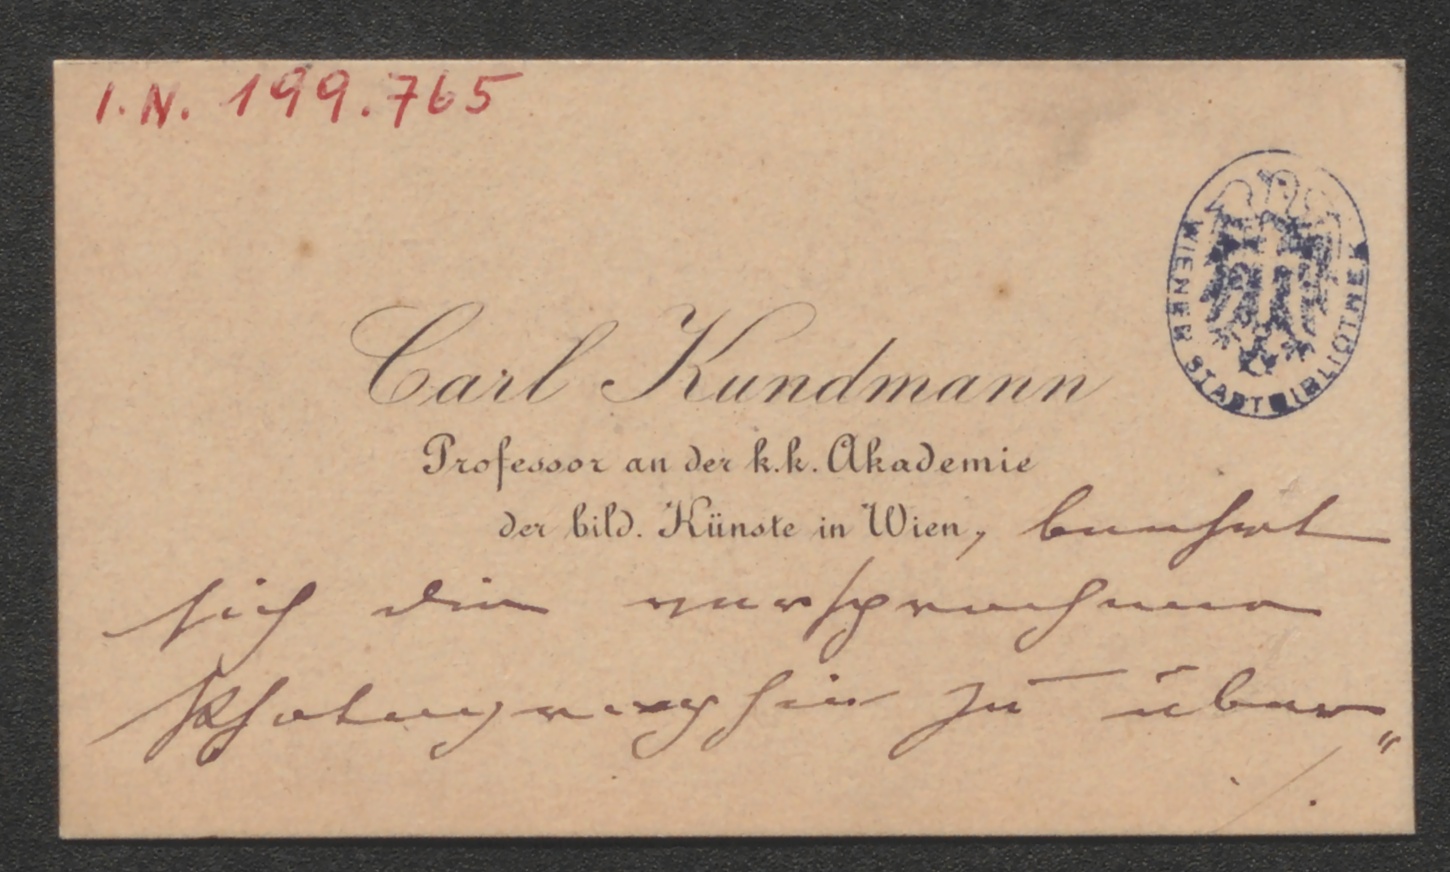 I.N. 199.765
WIENER STADTBIBLIOTHEK
Carl Kundmann
Professor an der k.k. Akademie
der bild. Künste in Wien, beehrt
sich die versprochene
Photographie zu über„
./.